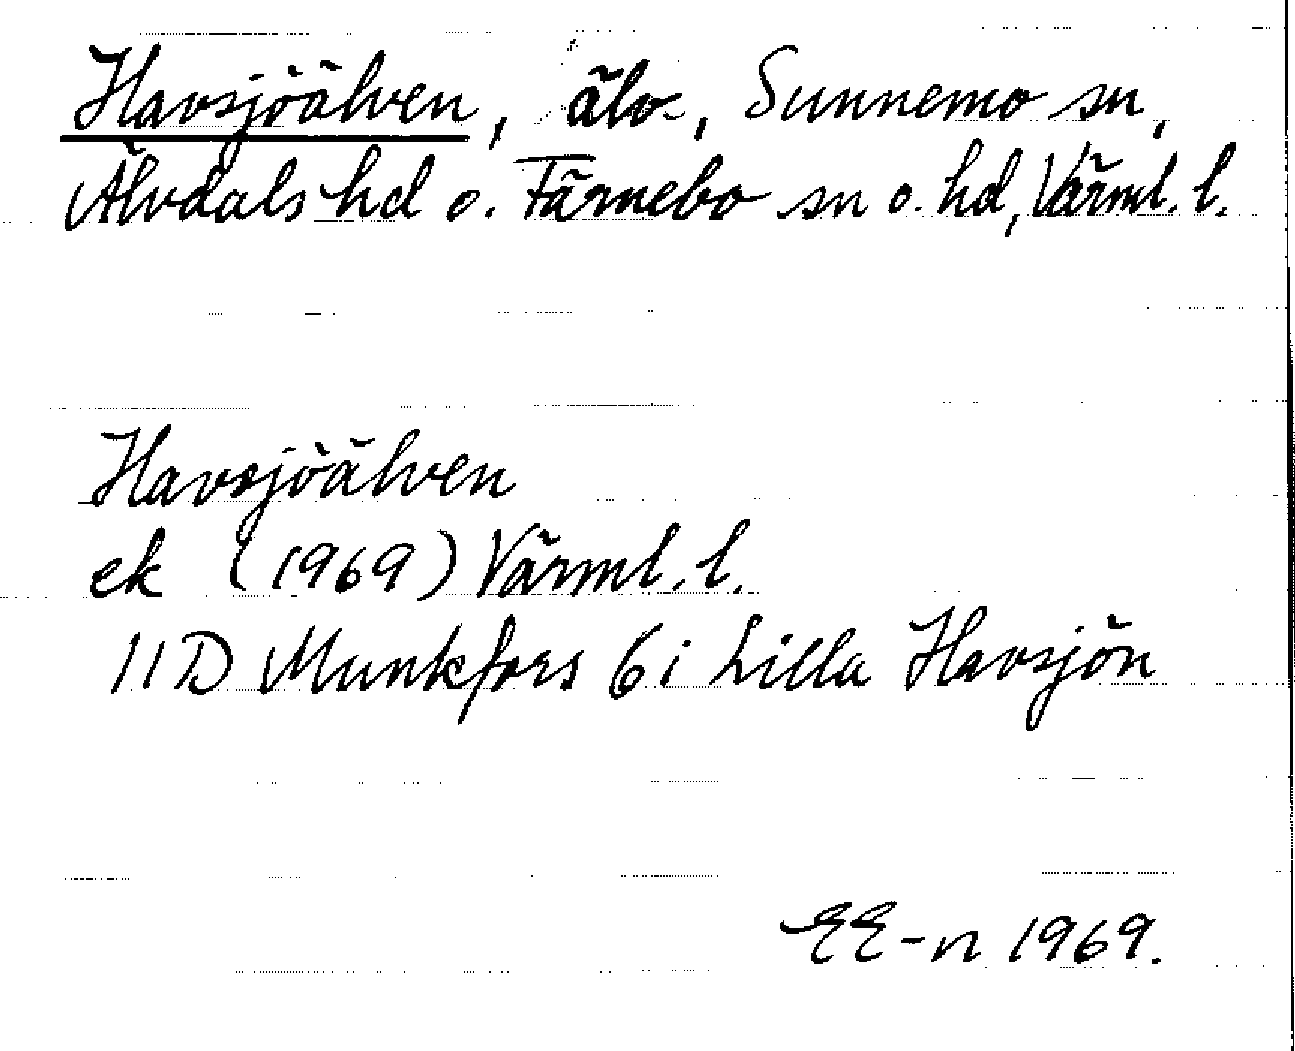 Havsjöälven, älv, Sunnemo sn,
Älvdals hd o. Färnebo sn o. hd, Värml. l.
Havsjöälven
ek (1969) Värml. l.
11D Munkfors 6 i Lilla Havsjön
EE-n 1969.